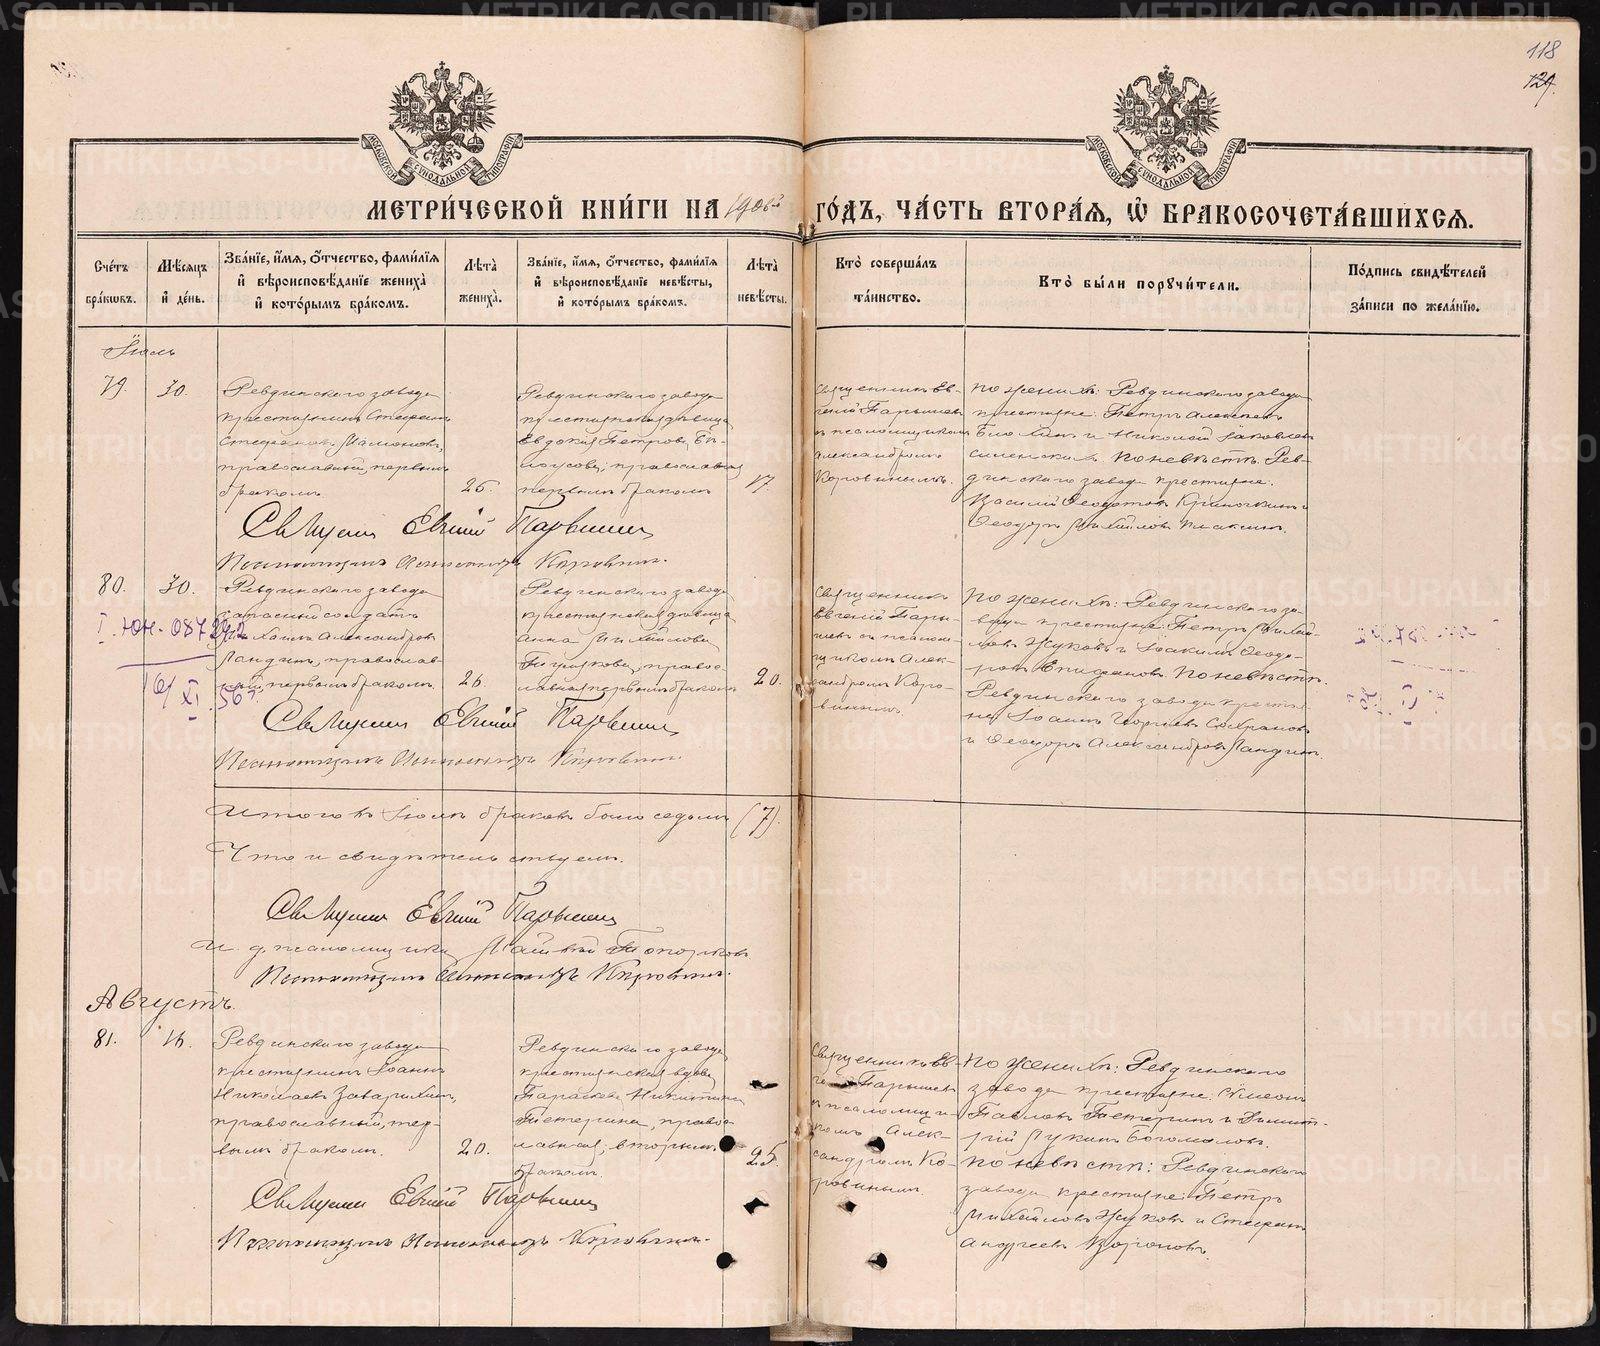 118
129.
МОСКОВСКОЙ СѴНОДАЛЬНОЙ ТИПОГРАФІИ
МОСКОВСКОЙ СѴНОДАЛЬНОЙ ТИПОГРАФІИ
МЕТРИ́ЧЕСКОЙ КНИ́ГИ НА 1906й ГО́ДЪ, ЧА́СТЬ ВТОРА́Я, Ѽ БРАКОСОЧЕТА́ВШИХСЯ.
Сче́тъ бра́кωвъ.
Мѣ́сяцъ и҆ де́нь.
Зва́нїе, и҆́мя, ѻ҆́тчество, фами́лїя и҆ вѣроисповѣ́данїе жениха̀ и҆ кото́рымъ бра́комъ.
Лѣ́та жениха̀.
Зва́нїе, и҆́мя, ѻ҆́тчество, фами́лїя и҆ вѣроисповѣ́данїе невѣ́сты, и҆ кото́рымъ бра́комъ.
Лѣ́та невѣ́сты.
Кто̀ соверша́лъ та́инство.
Кто̀ бы́ли порꙋчи́тели.
По́дпись свидѣ́телей за́писи по жела́нїю.
Іюль
79. 30.
Ревдинскаго завода
крестьянинъ Стефанъ
православный, первымъ
бракомъ.
25.
Ревдинскаго завода
крестьянская дѣвица
Евдокія Петрова Бѣ-
лоусова, православная
первымъ бракомъ
17.
Священникъ Ев-
геній Парышев
и псаломщикомъ
Александромъ
Коровинымъ.
По женихѣ: Ревдинскаго завода
крестьяне: Петръ Алексѣев
и Николай Іаковлев
По невѣстѣ: Рев-
динскаго завода крестьяне:
Василій Ѳеодотов
Ѳеодоръ Михайлов
Священник Евгеній Парышев
Псаломщикъ Александръ Коровинъ.
80. 30.
Ревдинскаго завода
запасный солдатъ
Михаилъ Александров
Ландинъ, православ-
ный, первымъ бракомъ.
26.
Ревдинскаго завода
крестьянская дѣвица
Анна Михайлова
правос-
лавная первымъ бракомъ
20.
Священникъ
Евгеній Пары-
шев съ псалом-
щикомъ Алек-
сандромъ Коро-
винымъ
По женихѣ: Ревдинскаго за-
вода крестьяне: Петръ Михай-
ловъ Жуковъ и Іоакимъ Ѳеодо-
ровъ Епифановъ По невѣстѣ:
Ревдинскаго завода крестья-
не Іоаннъ Георгіев
и Ѳеодоръ Александровъ Ландинъ.
I ЮН-087242
XI.56 г
Священник Евгеній Парышев
Псаломщикъ Александръ Коровинъ.
Итого въ Іюлѣ браковъ было седьмь (7).
Что и свидѣтельствуемъ.
Священник Евгеній Парышев
И. д. псаломщика Топорковъ
Псаломщикъ Александръ Коровинъ.
Августъ.
81. 16.
Ревдинскаго завода
крестьянинъ Іоаннъ
Николаевъ Захарихинъ,
православный, пер-
вымъ бракомъ.
20.
Ревдинскаго завода
крестьянская вдова
Параскева Никитина
Тетерина, правос-
лавная, вторымъ
бракомъ.
25.
Священникъ Ев-
геній Парышев
и псаломщи-
комъ Алек-
сандромъ Ко-
ровинымъ
По женихѣ: Ревдинскаго
завода крестьяне: Симеонъ
Павловъ Тетеринъ и Димит-
рій Лукинъ Богомоловъ.
По невѣстѣ: Ревдинскаго
завода крестьяне: Петръ
Михайловъ Жуковъ и Стефанъ
Андреевъ Вороновъ.
Священник Евгеній Парышев
Псаломщикъ Александръ Коровинъ.
METRIKI.GASO-URAL.RU